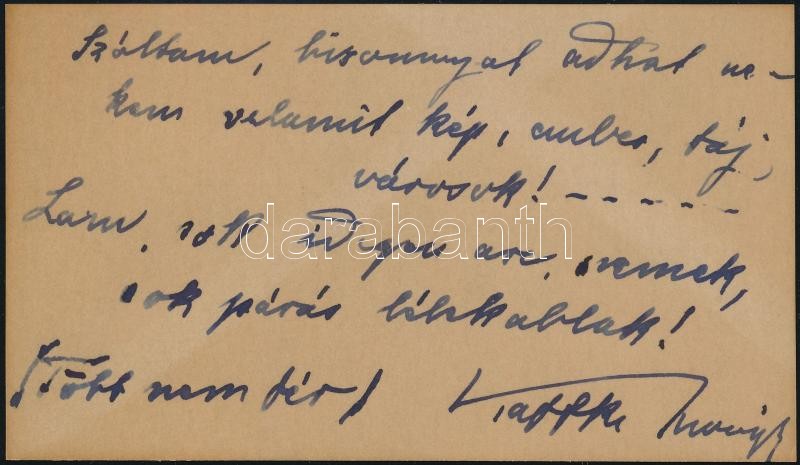 Szóltam, bisonnyal adhat ne-
kem valamit kép, ember, táj,
városok! - - - - -
Lám, sok idegen arc, szemek,
sok párás lélekablak!
(Több nem fér)
Kaffka Margit
darabanth